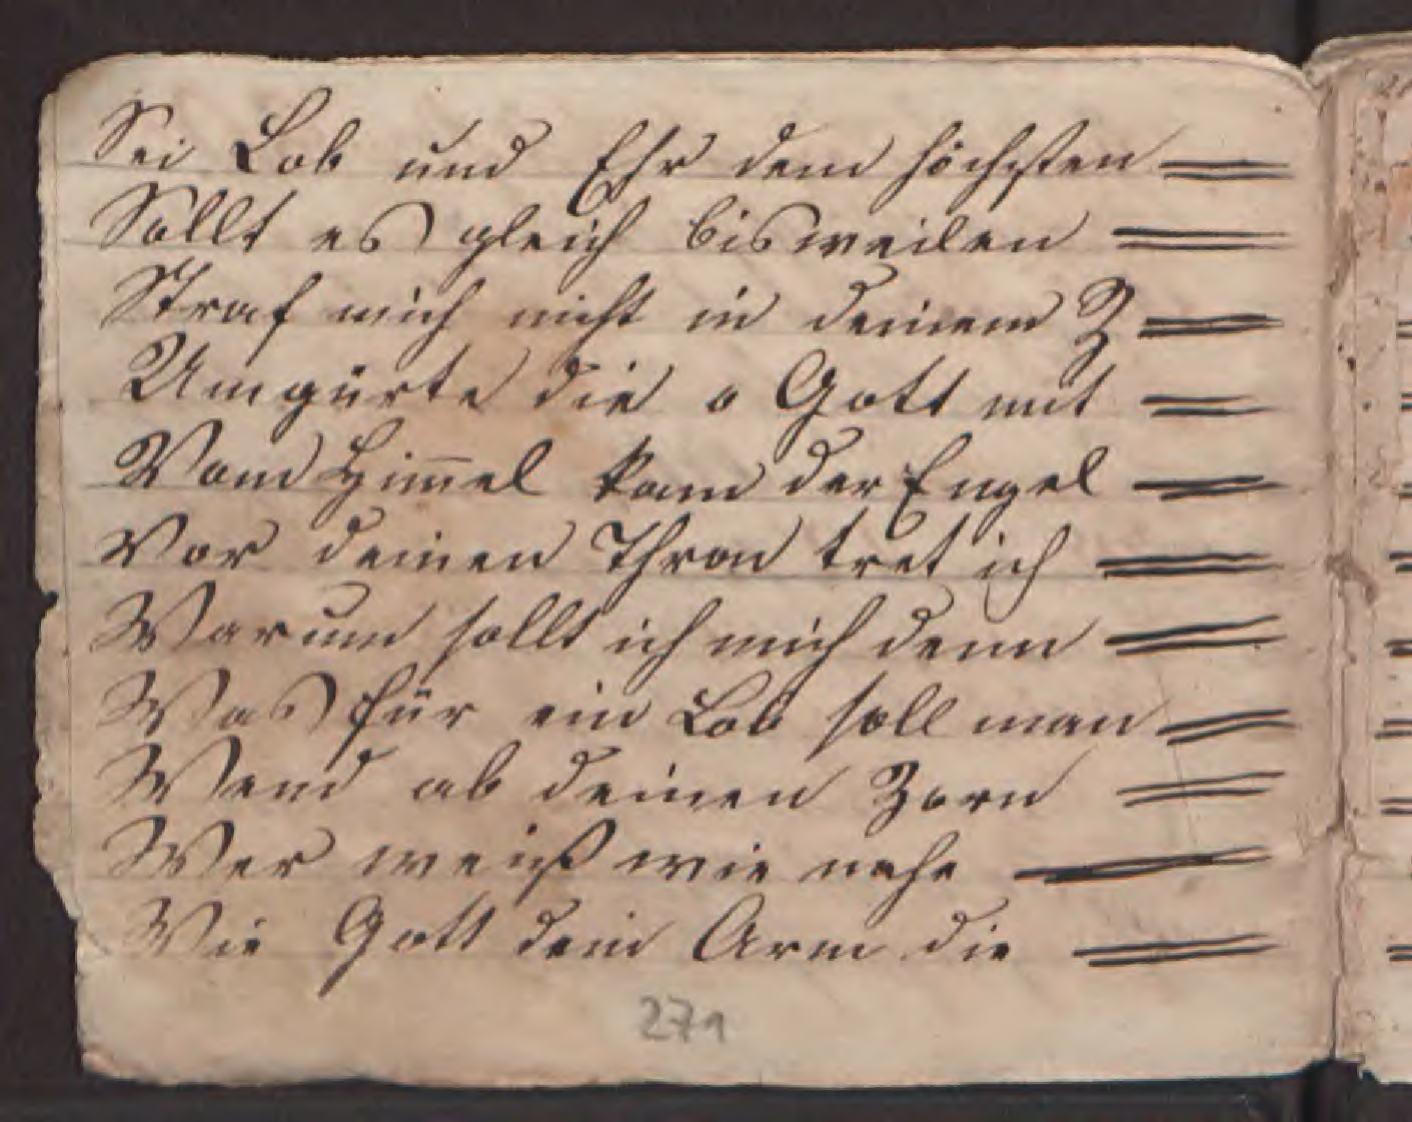 Sei Lob und Ehr dem höchsten =
Sollt es gleich bisweilen =
Straf mich nicht in deinem Z =
Umgürte die o Gott mit =
Vom Him̄el kam der Engel =
Vor deinen Thron tret ich =
Warum sollt ich mich denn =
Was für ein Lob soll man =
Wend ab deinen Zorn =
Wer weiß wie nahe =
Wie Gott dein Arm die =
271